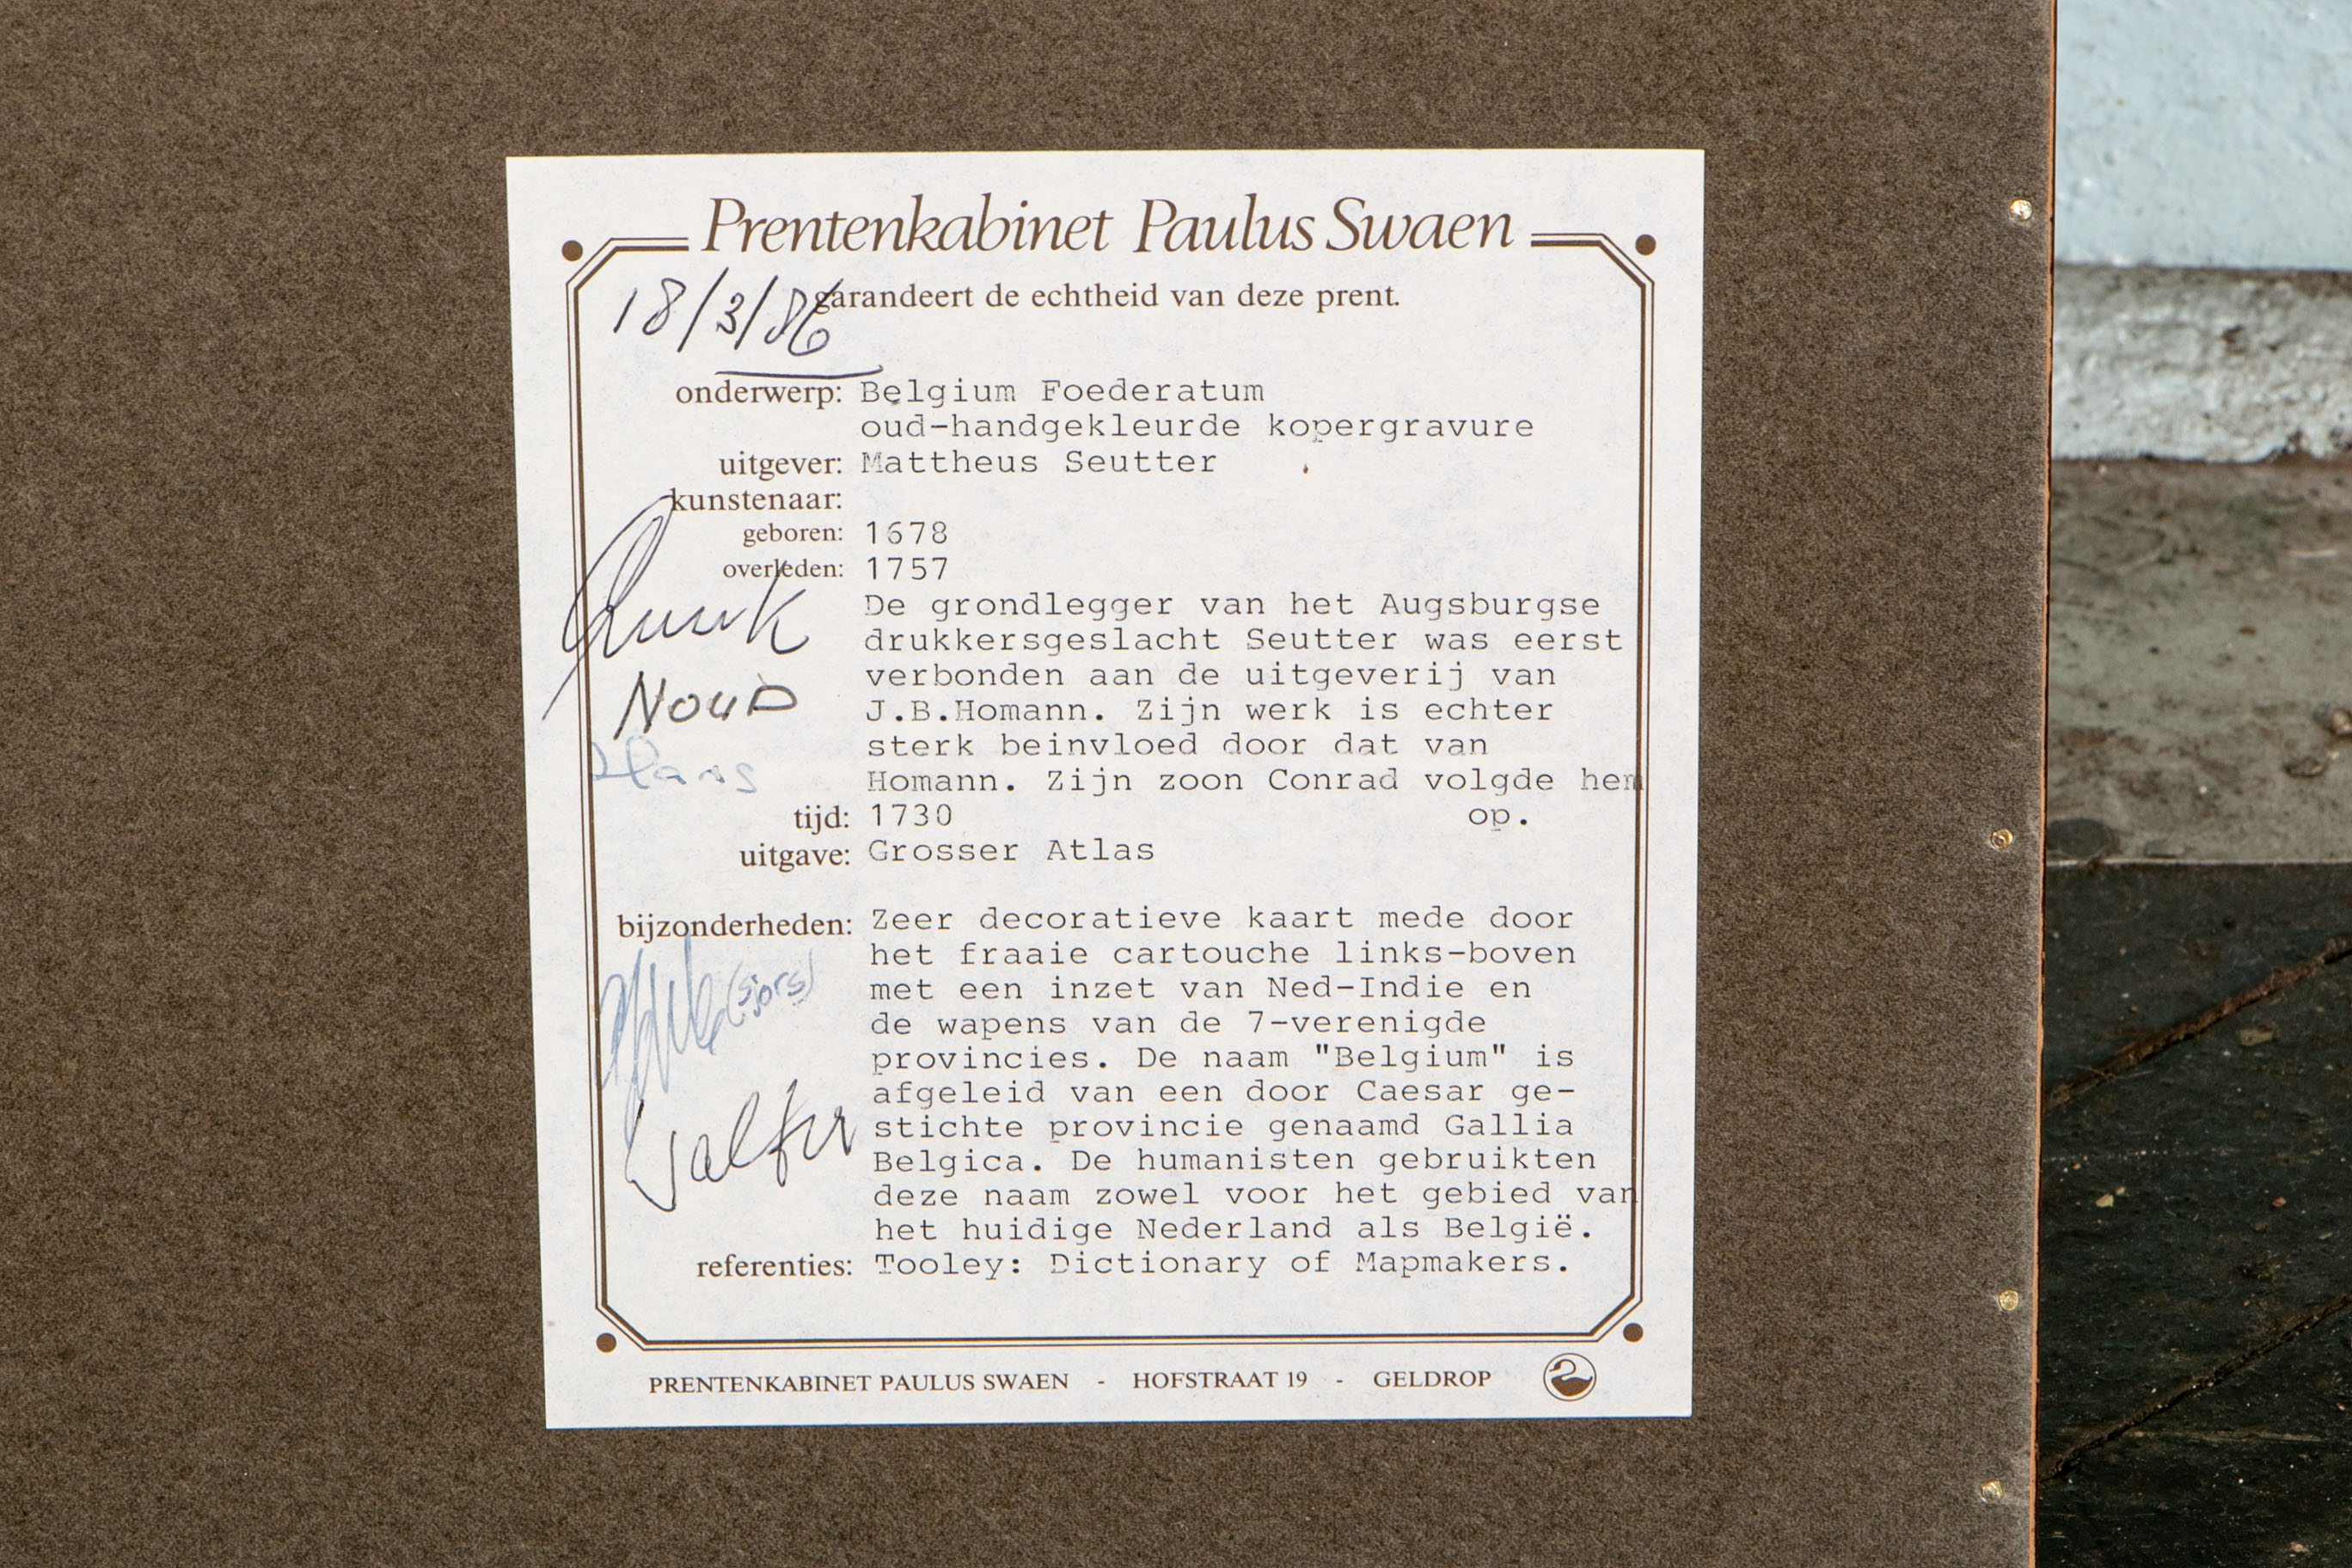 Prentenkabinet Paulus Swaen
garandeert de echtheid van deze prent.
18/3/86
onderwerp: Belgium Foederatum
oud-handgekleurde kopergravure
uitgever: Mattheus Seutter
kunstenaar:
geboren: 1678
overleden: 1757
De grondlegger van het Augsburgse
drukkersgeslacht Seutter was eerst
verbonden aan de uitgeverij van
J.B.Homann. Zijn werk is echter
sterk beinvloed door dat van
Homann. Zijn zoon Conrad volgde hem
op.
Noud
Hans
tijd: 1730
uitgave: Grosser Atlas
bijzonderheden: Zeer decoratieve kaart mede door
het fraaie cartouche links-boven
met een inzet van Ned-Indie en
de wapens van de 7-verenigde
provincies. De naam "Belgium" is
afgeleid van een door Caesar ge-
stichte provincie genaamd Gallia
Belgica. De humanisten gebruikten
deze naam zowel voor het gebied van
het huidige Nederland als België.
(sjors)
Walter
referenties: Tooley: Dictionary of Mapmakers.
PRENTENKABINET PAULUS SWAEN - HOFSTRAAT 19 - GELDROP